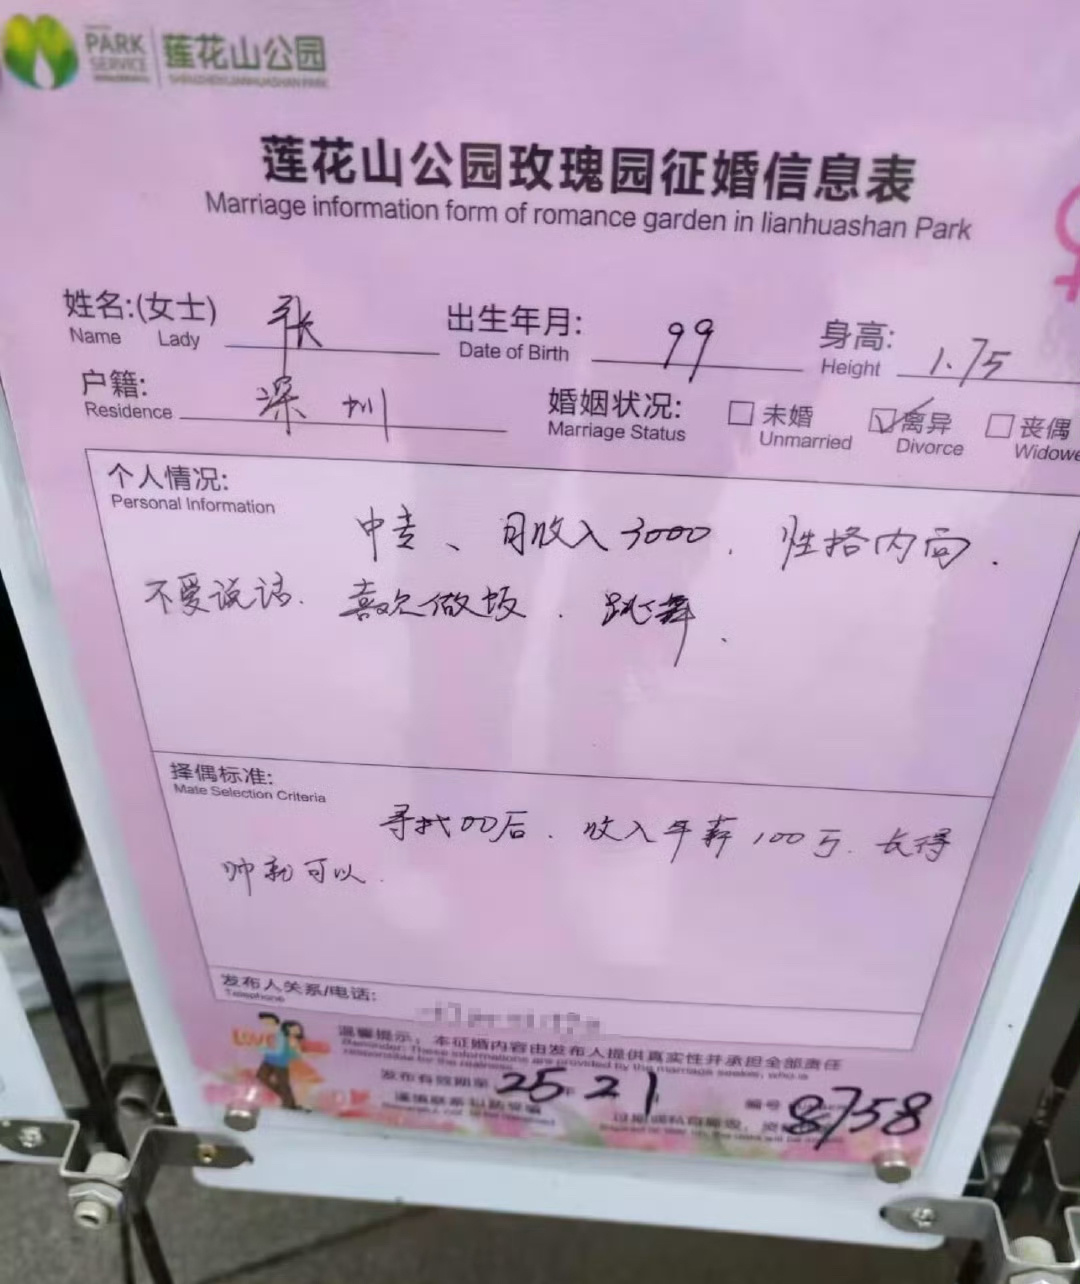 PARK SERVICE 莲花山公园
SHENZHEN LIANHUASHAN PARK
莲花山公园玫瑰园征婚信息表
Marriage information form of romance garden in lianhuashan Park
姓名:(女士) 张 出生年月: 99 身高: 1.75
Name Lady Date of Birth Height
户籍: 深圳 婚姻状况: 未婚 离异 丧偶
Residence Marriage Status Unmarried Divorce Widowe
个人情况:
Personal Information
中专、月收入3000. 性格内向.
不爱说话. 喜欢做饭. 跳舞.
择偶标准:
Mate Selection Criteria
寻找00后. 收入年薪100万. 长得
帅就可以.
发布人关系/电话:
Telephone
LOVE
温馨提示: 本征婚内容由发布人提供真实性并承担全部责任
Reminder: These informations are provided by the marriage seeker, who is
responsible for the realness
发布有效期至 25年 2 1 编号 8758